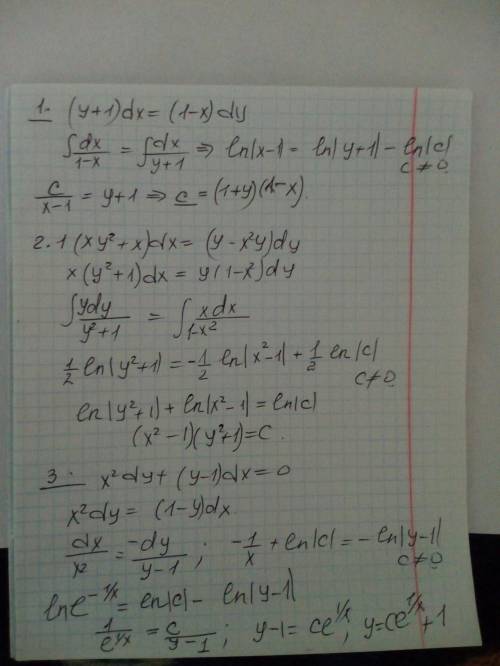 1. (y+1)dx = (1-x)dy
∫dx/1-x = ∫dx/y+1 ⇒ ln|x-1| = ln|y+1| - ln|c|
c≠0
c/x-1 = y+1 ⇒ c = (1+y)(1-x).
2. 1 (xy²+x)dx = (y-x²y)dy
x(y²+1)dx = y(1-x²)dy
∫ydy/y²+1 = ∫xdx/1-x²
1/2 ln|y²+1| = -1/2 ln|x²-1| + 1/2 ln|c|
c≠0
ln|y²+1| + ln|x²-1| = ln|c|
(x²-1)(y²+1) = C.
3. x²dy + (y-1)dx = 0
x²dy = (1-y)dx
dx/x² = -dy/y-1 ; -1/x + ln|c| = -ln|y-1|
c≠0
ln e^-1/x = ln|c| - ln|y-1|
1/e^1/x = c/y-1 ; y-1 = ce^1/x ; y = ce^1/x + 1